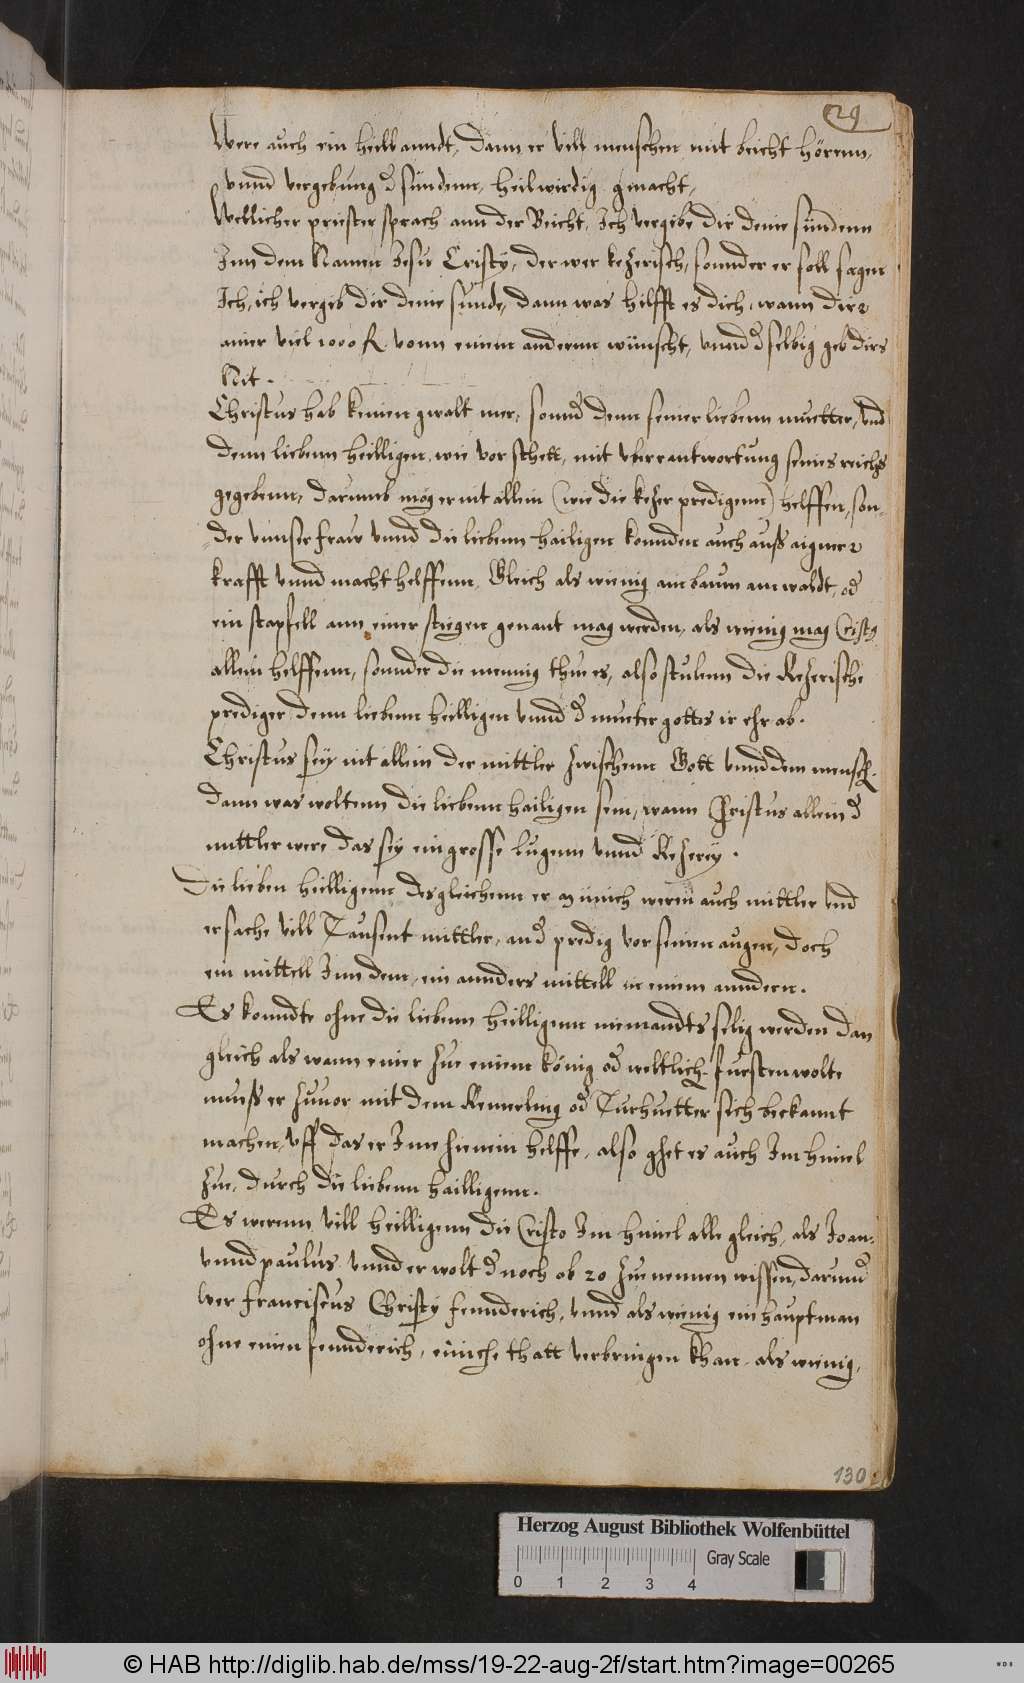 29
Were auch ein heill anndt, dann er vill menschen mit beicht hörenn,
vnnd vergebung d sündenn, heilwirdig gmacht,
Wellicher priester sprach ann der Beicht, Ich vergibe dir deine sündenn
Inn dem Namen Jesu Cristy, der wer kezerisch, sonnder er soll sagen
Ich, ich vergib dir deine sünde, dann was hilfft es dich, wann dir
ainer viel 1000 fl vonn einem andernn wünscht, vnnd d selbig geb dirs
Nit.
Christus hab keinen gwalt mer, sonnd denn seiner liebenn muetter, vnd
denn liebenn heilligen, wie vor stett, mit vberantwortung seines reichs
gegebenn, darumb mög er nit allein (wie die kezer predigenn) helffen, son-
der vnnser fraw vnnd die liebenn hailigen konnden auch auß aigner
krafft vnnd macht helffenn, Gleich als wienig ain baum ain waldt, od
ein stapfell ann einer stiegen genant mag werden, als wenig mag Cristus
allein helffenn, sonnder die mennig thue es, also stulenn die Kezerische
prediger denn liebenn heilligen vnnd d mueter gottes ir ehr ab.
Christus sey nit allein der mittler zwischenn Gott vnnd dem mensch.
dann was woltenn die liebenn hailigen sein, wann Christus allein d
mittler were das sey ein grosse lugenn vnnd Kezerey.
Die lieben heilligenn desgleichenn er münich weren auch mittler vnd
er sache vill Tausent mittler, an d predig vor seinen augen, doch
ein mittell Inn dem, ein annders mittell in einem anndern.
Es konndte ohne die liebenn heilligenn niemandts selig werden dan
gleich als wann einer zue einem König od weltlich fuersten wolte
muess er zuuor mit dem Kemerling od Turhuetter sich bekannt
machen, vff das er Inn hienein helffe, also ghet es auch Im himel
zue, durch die liebenn hailligenn.
Es werenn vill heilligenn die Cristo Im himel alle gleich, als Joan:
vnnd paulus vnnd er wolt d noch ob 20 zue nennen wissen, darumb
wer franciscus Christy fenndrich, vnnd als wienig ein hauptman
ohne einen fenndrich, einiche thatt verbringen khan, als wienig,
130
Herzog August Bibliothek Wolfenbüttel
Gray Scale
0 1 2 3 4
© HAB http://diglib.hab.de/mss/19-22-aug-2f/start.htm?image=00265